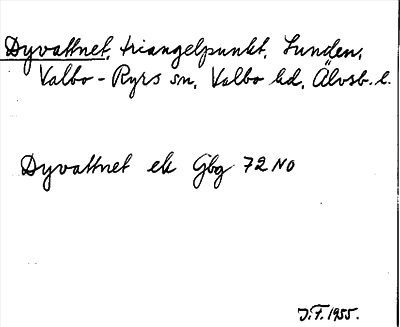 Dyvattnet, triangelpunkt, Lunden,
Valbo-Ryrs sn, Valbo hd, Älvsb. l.
Dyvattnet ek Gbg 72 NO
J.F. 1955.